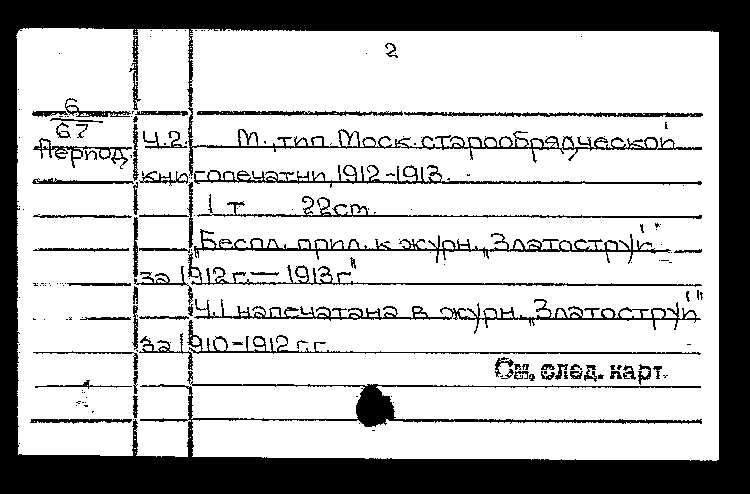 2
6
67
Период.
Ч.2. М., тип. Моск. старообрядческой
книгопечатни, 1912-1913.
1 т. 22cm.
„Беспл. прил. к журн. „Златоструй"
за 1912 г. — 1913 г."
Ч.1 напечатана в журн. „Златоструй"
за 1910-1912 г.г.
См. след. карт.